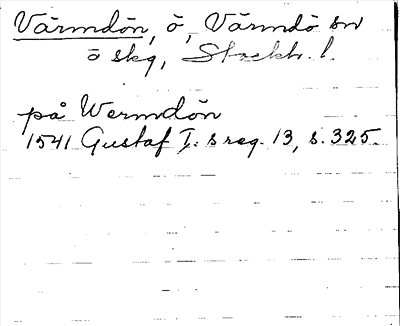 Värmdön, ö, Värmdö sn
ö skg, Stockh. l.
på Wermdön
1541 Gustaf I:s reg. 13, s. 325.